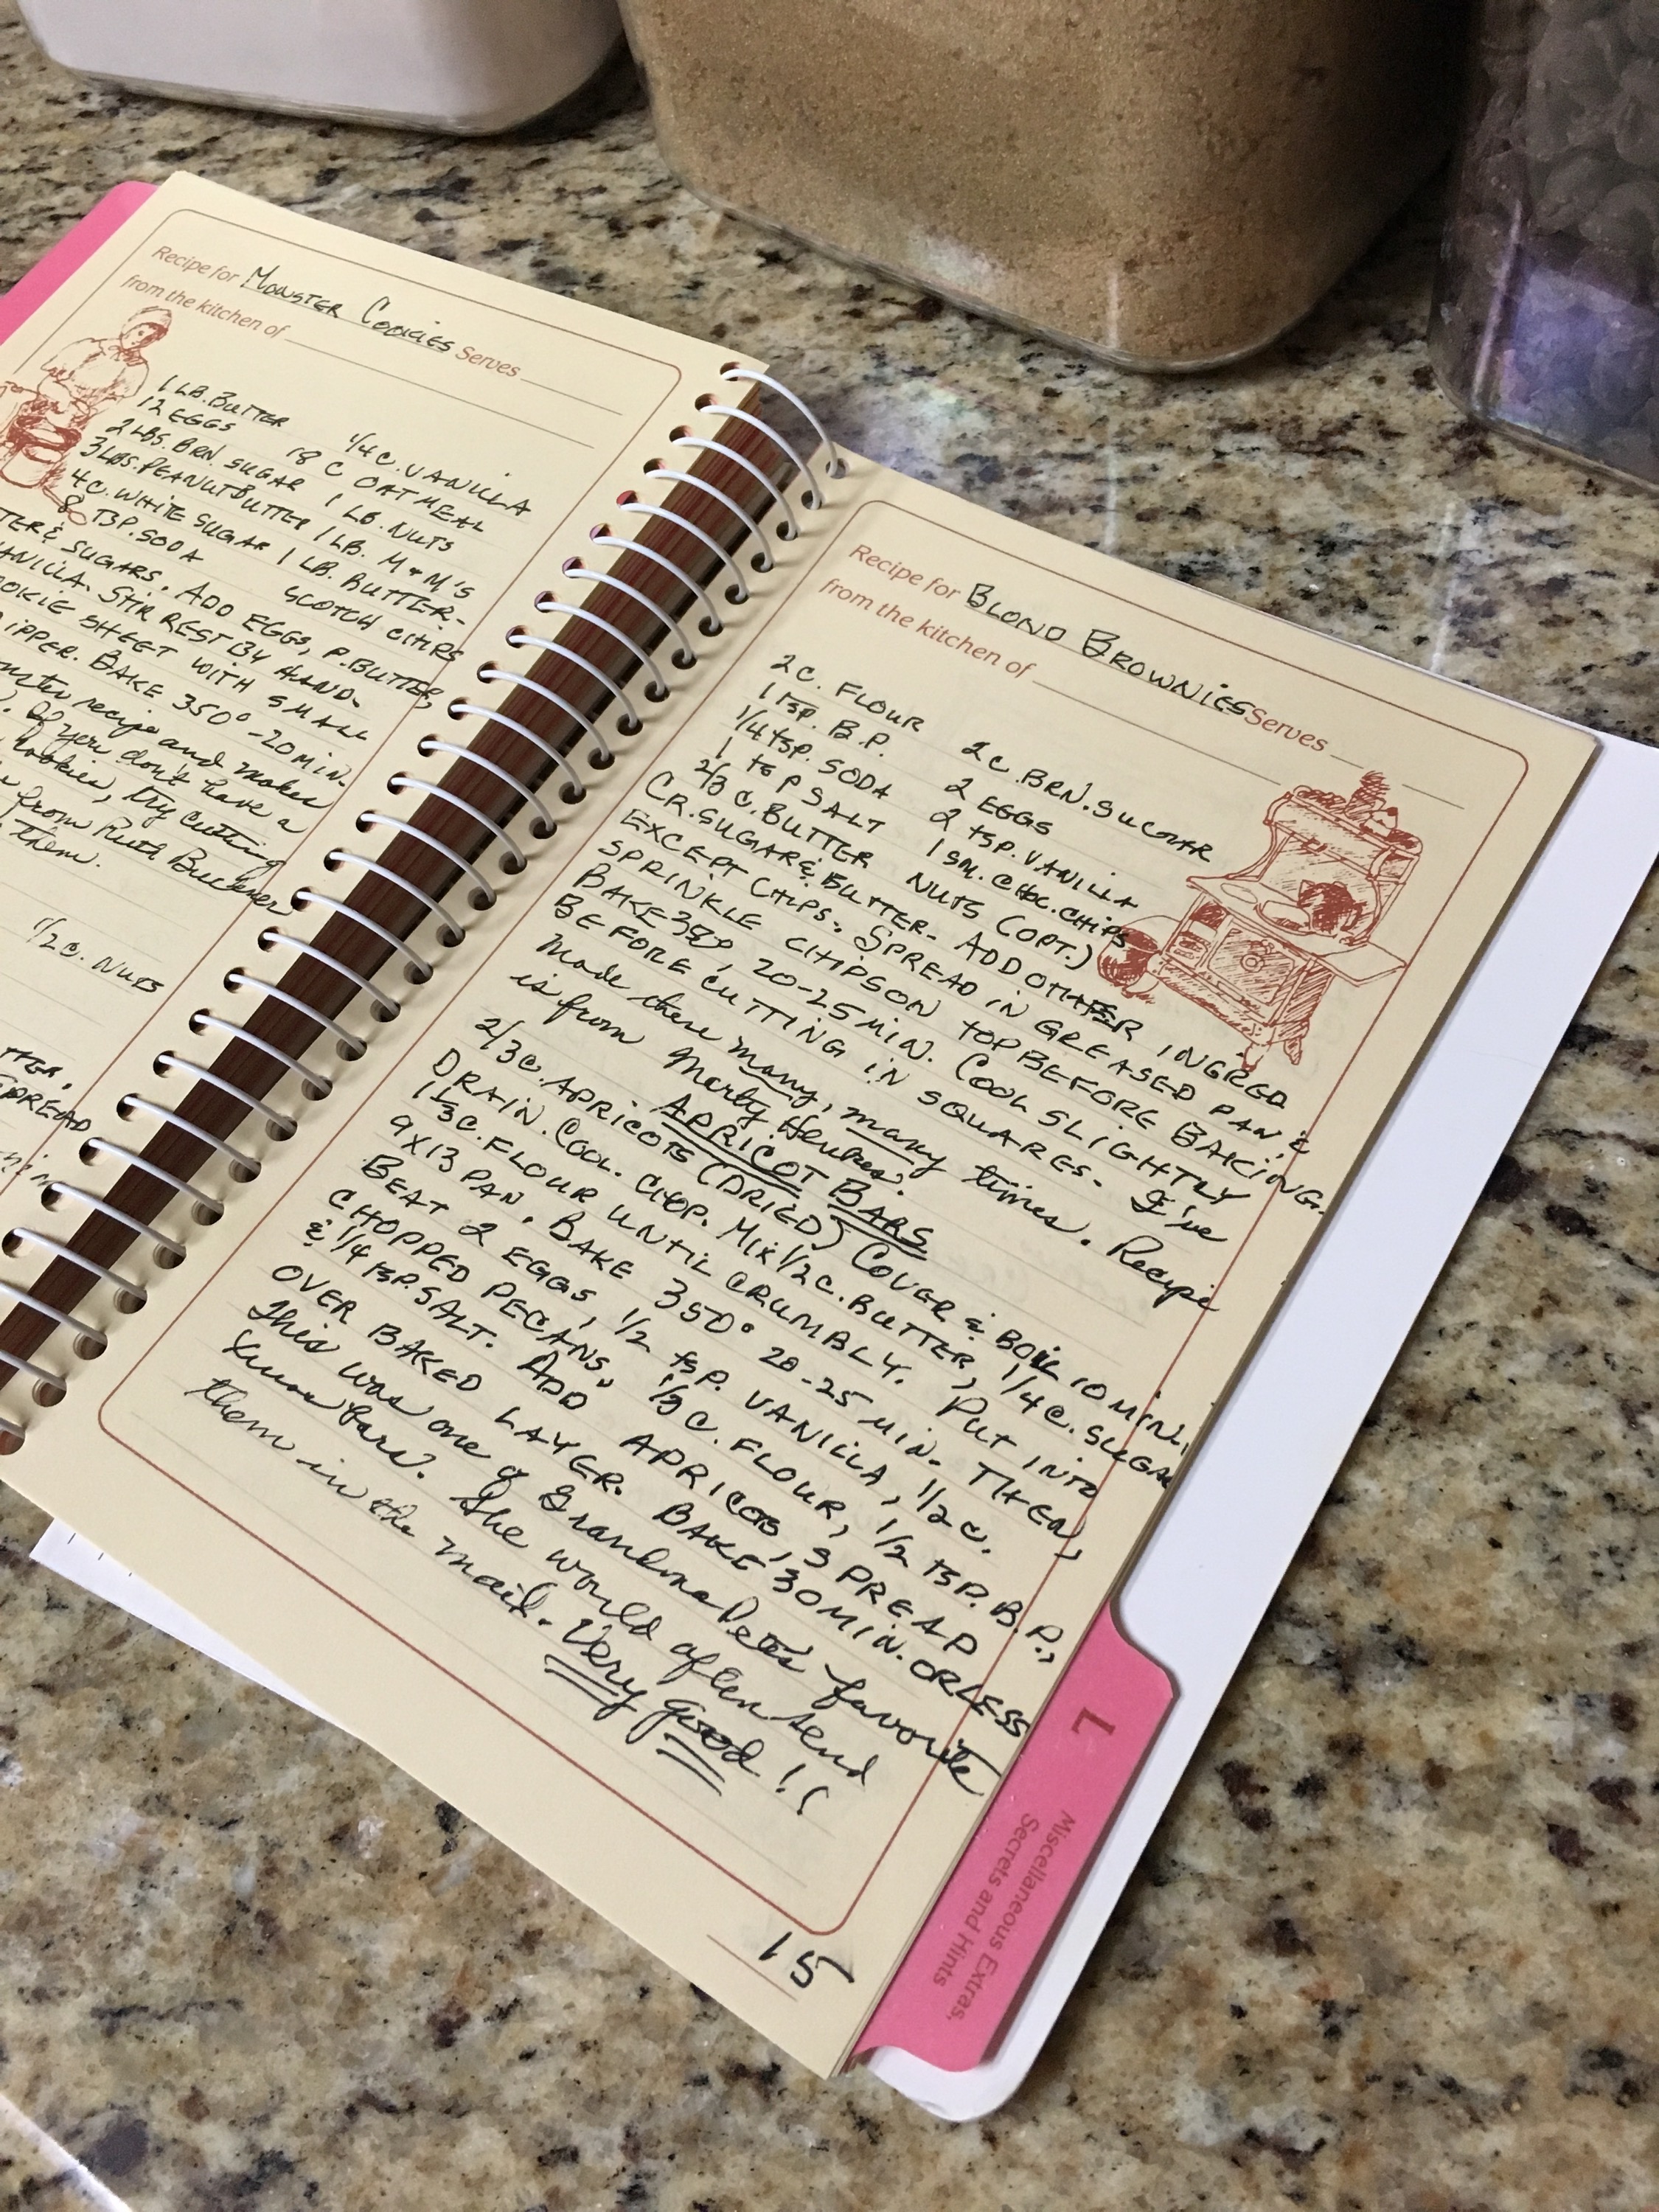 Recipe for MONSTER COOKIES Serves
from the kitchen of
1 LB. BUTTER 1/4 C. VANILLA
12 EGGS 18 C OATMEAL
2 LBS. BRN. SUGAR 1 LB. NUTS
3 LBS. PEANUTBUTTER 1 LB. M & M'S
4 C. WHITE SUGAR 1 LB. BUTTER-
8 TSP. SODA SCOTCH CHIPS
TER & SUGARS. ADD EGGS, P. BUTTER,
ANILLA. STIR REST BY HAND.
OOKIE SHEET WITH SMALL
IPPER. BAKE 350° - 20 MIN.
onster recipe and makes
. If you don't have a
cookies, try cutting
from Ruth Buckner
them.
1/2 C. NUTS
TTER,
SPREAD
Recipe for BLOND BROWNIES Serves
from the kitchen of
2 C. FLOUR 2 C. BRN. SUGAR
1 TSP. B.P. 2 EGGS
1/4 tsp. SODA 2 tsp. VANILLA
1 tsp SALT 1 SM. CHOC. CHIPS
2/3 C. BUTTER NUTS (OPT.)
CR. SUGAR & BUTTER. ADD OTHER INGRED
EXCEPT CHIPS. SPREAD IN GREASED PAN &
SPRINKLE CHIPS ON TOP BEFORE BAKING.
BAKE 350°, 20-25 MIN. COOL SLIGHTLY
BEFORE CUTTING IN SQUARES. I've
made these many, many times. Recipe
is from Marty Henkes.
APRICOT BARS
2/3 C. APRICOTS (DRIED) COVER & BOIL 10 MIN.
DRAIN. COOL. CHOP. MIX 1/2 C. BUTTER, 1/4 C. SUGAR
1 1/3 C. FLOUR UNTIL CRUMBLY. PUT INTO
9 X 13 PAN. BAKE 350° 20-25 MIN. THEN
BEAT 2 EGGS, 1/2 tsp. VANILLA, 1/2 C.
CHOPPED PECANS, 1/3 C. FLOUR, 1/2 TSP. B.P.,
& 1/4 TSP. SALT. ADD APRICOTS, SPREAD
OVER BAKED LAYER. BAKE 30 MIN. OR LESS
This was one of Grandma Pete's favorite
bars. She would often send
them in the mail. Very good!!
15
L
Miscellaneous Extras,
Secrets and Hints